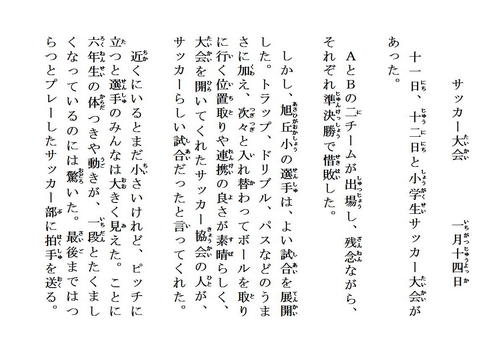 サッカー大会　　　一月十四日
十一日、十二日と小学生サッカー大会が
あった。
AとBの二チームが出場し、残念ながら、
それぞれ準決勝で惜敗した。
しかし、旭丘小の選手は、よい試合を展開
した。トラップ、ドリブル、パスなどのうま
さに加え、次々と入れ替わってボールを取り
に行く位置取りや連携の良さが素晴らしく、
大会を開いてくれたサッカー協会の人が、
サッカーらしい試合だったと言ってくれた。
近くにいるとまだ小さいけれど、ピッチに
立つと選手のみんなは大きく見えた。ことに
六年生の体つきや動きが、一段とたくまし
くなっているのには驚いた。最後まではつ
らつとプレーしたサッカー部に拍手を送る。